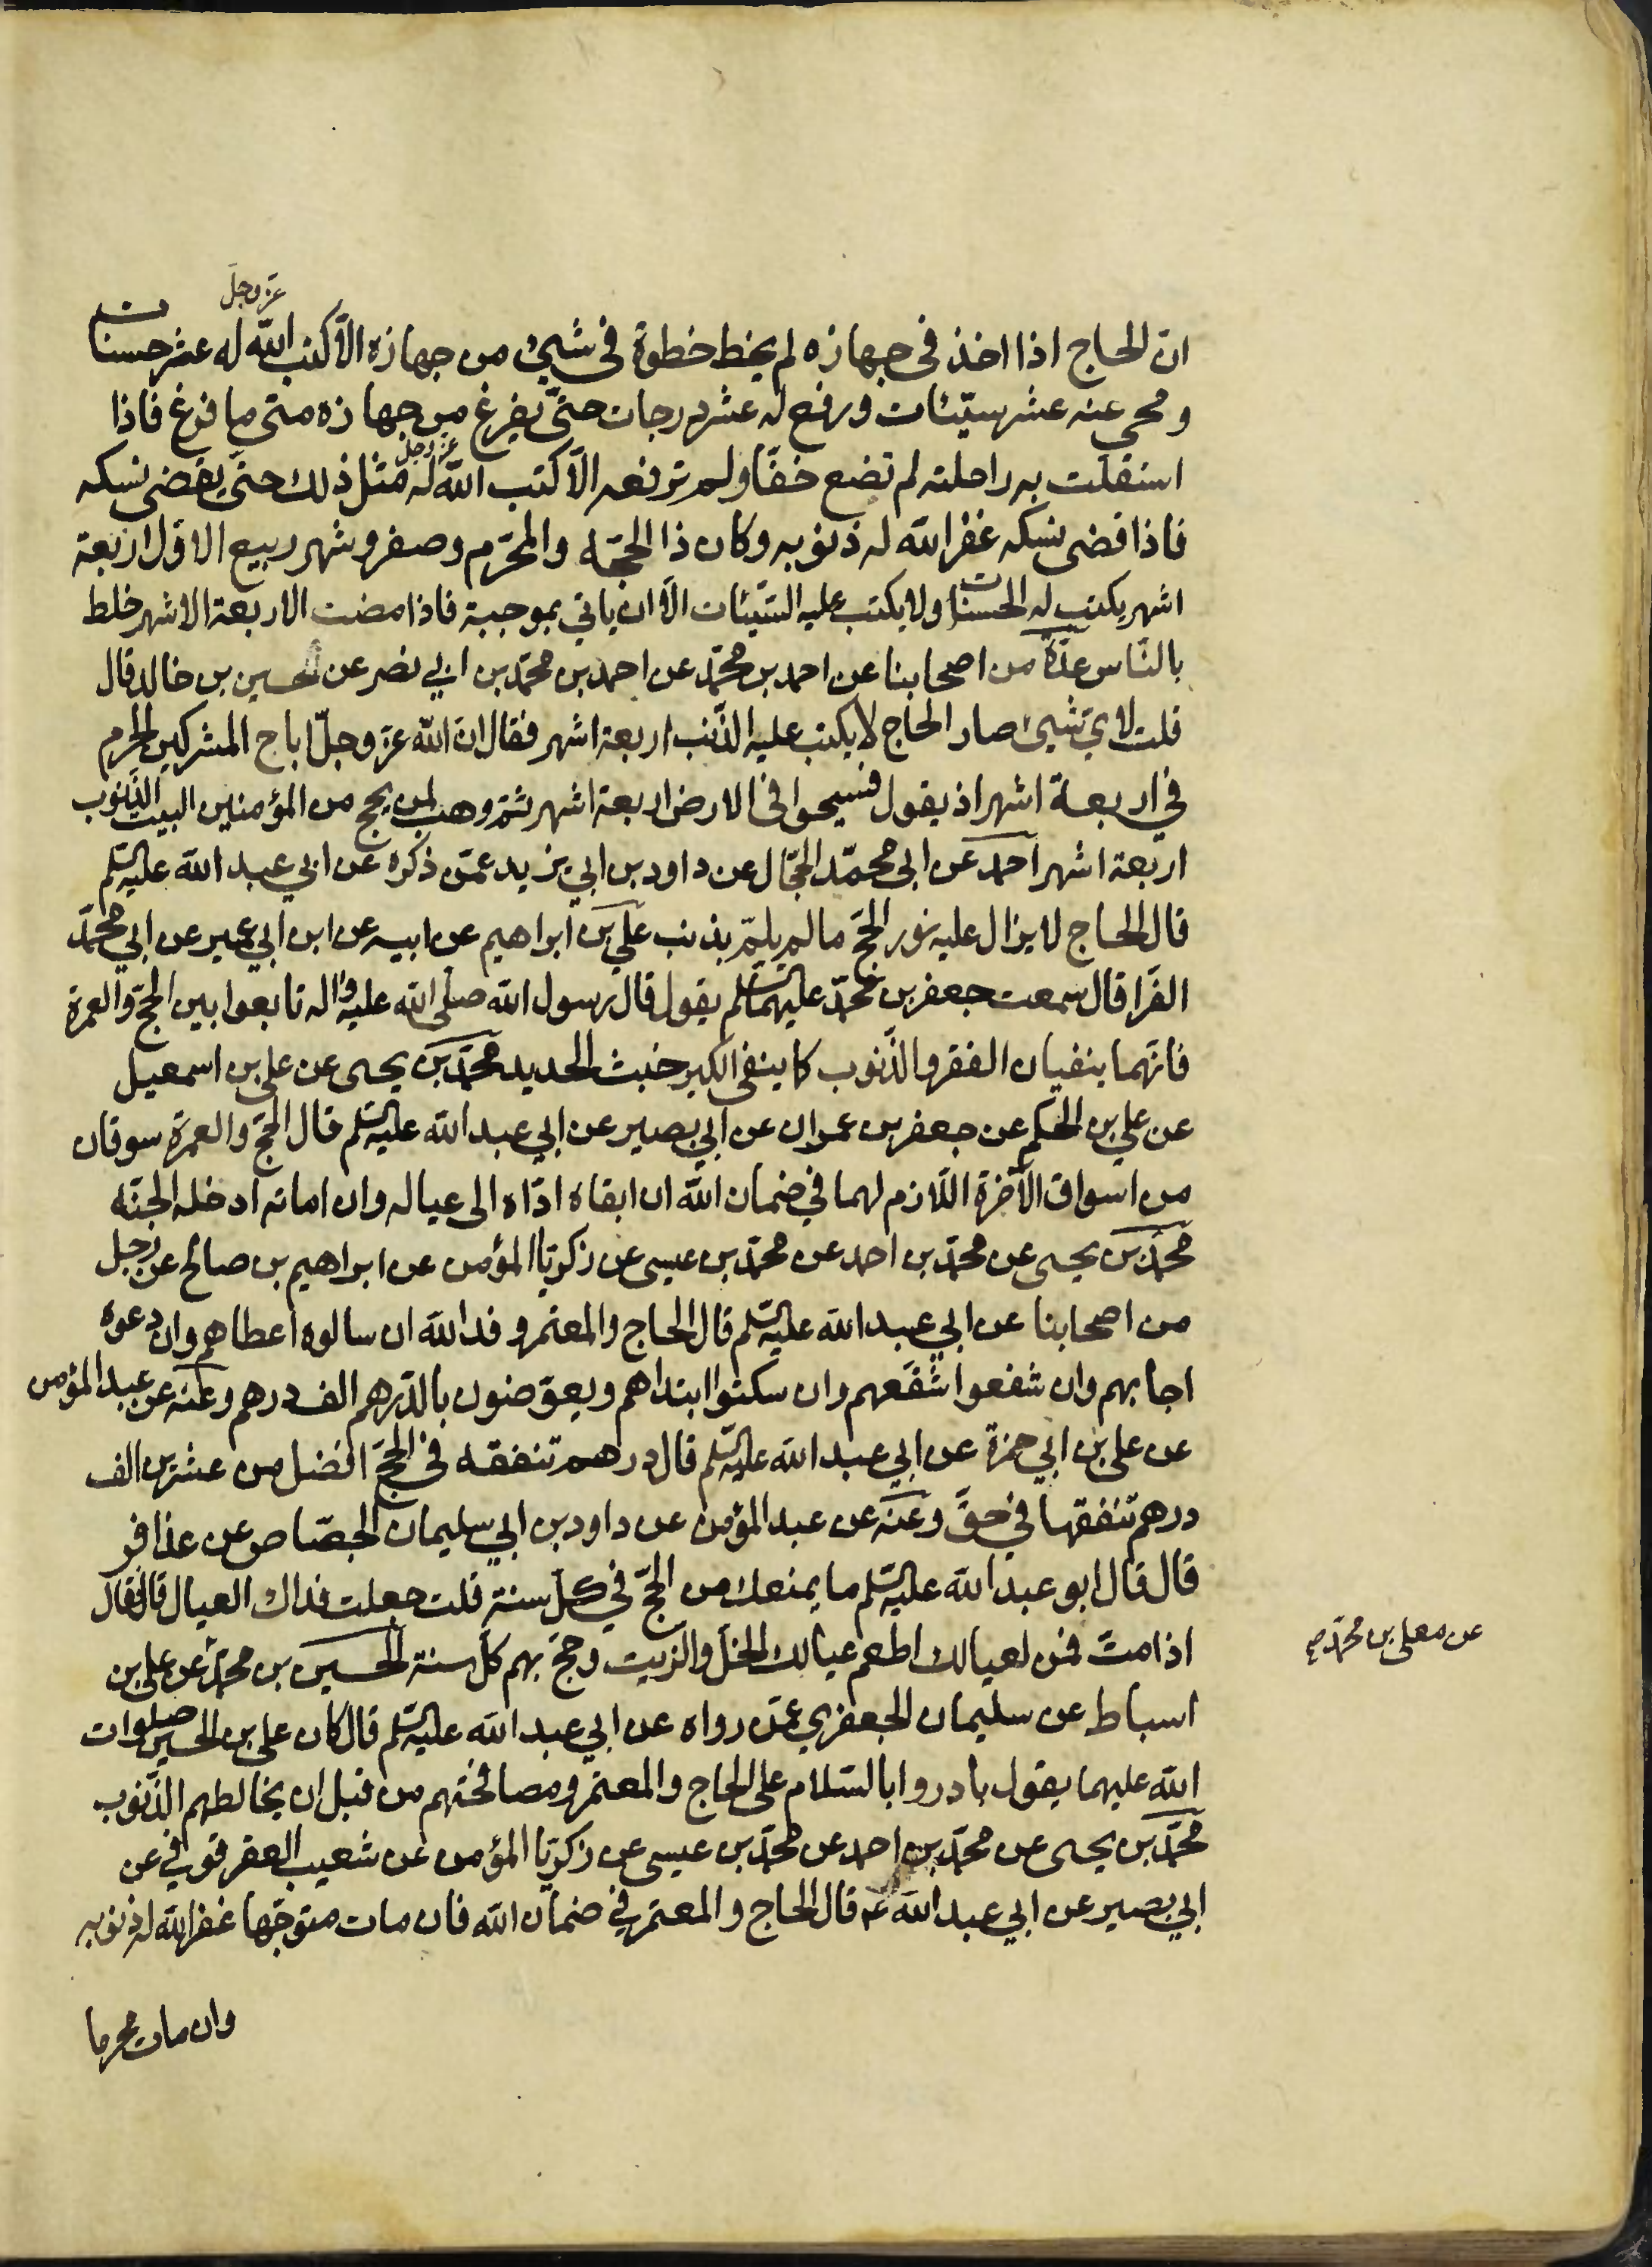 عزّ وجلّ
انّ الحاج اذا اخذ فى جهازه لم يخط خطوة فى شيئ من جهازه الّا كتب الله له عشر حسنات
ومحى عنه عشر سيّئات ورفع له عشر درجات حتّى يفرغ من جهازه متى ما فرغ فاذا
عزّ وجلّ
استقلّت به راحلته لم تضع خفّا ولم ترفعه الّا كتب الله له مثل ذلك حتى يقضى نسكه
فاذا قضى نسكه غفر الله له ذنوبه وكان ذا الحجّه والمحرّم وصفر وشهر ربيع الاوّل اربعة
اشهر يكتب له الحسنات ولا يكتب عليه السّيّئات الّا ان ياتي بموجبة فاذا مضت الاربعة الاشهر خلط
بالنّاس عدّة من اصحابنا عن احمد بن محمّد عن احمد بن محمّد بن ابي نصر عن الحسين بن خالد قال
قلت لايّ شيئ صار الحاج لا يكتب عليه الذّنب اربعة اشهر فقال انّ الله عزّ وجلّ اباح المشركين الحرم
في اربعة اشهر اذ يقول فسيحوا فى الارض اربعة اشهر ثمّ وهب لمن يحج من المؤمنين البيت الذّنوب
اربعة اشهر احمد عن ابى محمّد الحجّال عن داود بن ابي يزيد عمّن ذكره عن ابي عبد الله عليه السّلم
قال الحاج لا يزال عليه نور الحجّ ما لم يلمّ بذنب علي بن ابراهيم عن ابيه عن ابن ابي عمير عن ابي محمّد
الفرّا قال سمعت جعفر بن محمّد عليهما السّلم يقول قال رسول الله صلّى الله عليه واله تابعوا بين الحجّ والعمرة
فانّهما ينفيان الفقر والذّنوب كما ينفى الكير خبث الحديد محمّد بن يحيى عن على بن اسمعيل
عن علي بن الحكم عن جعفر بن عمران عن ابي بصير عن ابي عبد الله عليه السّلم قال الحجّ والعمرة سوقان
من اسواق الآخرة اللّازم لهما في ضمان الله ان ابقاه ادّاه الى عياله وان اماته ادخله الجنّه
محمّد بن يحيى عن محمّد بن احمد عن محمّد بن عيسى عن زكريّا المؤمن عن ابراهيم بن صالح عن رجل
من اصحابنا عن ابي عبد الله عليه السّلم قال الحاج والمعتمر وفد الله ان سالوه اعطاهم وان دعوه
اجابهم وان شفعوا شفّعهم وان سكتوا ابتداهم ويعوّضون بالدّرهم الف درهم وعنه عن عبد المؤمن
عن على بن ابي حمزة عن ابي عبد الله عليه السّلم قال درهم تنفقه فى الحجّ افضل من عشرين الف
درهم تنفقها في حقّ وعنه عن عبد المؤمن عن داود بن ابي سليمان الجصّاص عن عذافر
قال قال ابو عبد الله عليه السّلم ما يمنعك من الحجّ في كلّ سنة قلت جعلت فداك العيال قال فقال
اذا متّ فمن لعيالك اطعم عيالك الخلّ والزيت وحجّ بهم كلّ سنة الحسين بن محمّد عن على بن
عن معلى بن محمّد صح
اسباط عن سليمان الجعفري عمّن رواه عن ابي عبد الله عليه السّلم قال كان على بن الحسين صلوات
الله عليهما يقول بادروا بالسّلام على الحاج والمعتمر ومصافحتهم من قبل ان يخالطهم الذّنوب
محمّد بن يحيى عن محمّد بن احمد عن محمّد بن عيسى عن زكريّا المؤمن عن شعيب العقرقوفي عن
ابي بصير عن ابي عبد الله ع قال الحاج والمعتمر في ضمان الله فان مات متوجّها غفر الله له ذنوبه
وان مات محرما